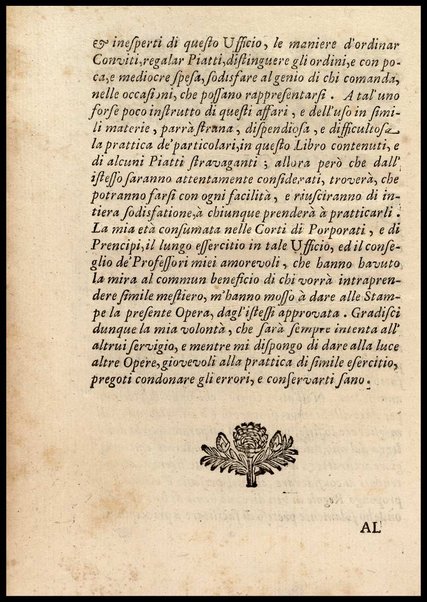 & ineſperti di queſto Ufficio, le maniere d'ordinar
Conviti, regalar Piatti, diſtinguere gli ordini, e con po-
ca, e mediocre ſpeſa, ſodisfare al genio di chi comanda,
nelle occaſioni, che poſſano rappreſentarſi. A tal'uno
forſe poco inſtrutto di queſti affari, e dell'uſo in ſimi-
li materie, parrà ſtrana, diſpendioſa, e difficultoſa
la prattica de' particolari, in queſto Libro contenuti, e
di alcuni Piatti ſtravaganti; allora però che dall'
iſteſſo ſaranno attentamente conſiderati, troverà, che
potranno farſi con ogni facilità, e riuſciranno di in-
tiera ſodisfatione, à chiunque prenderà à pratticarli.
La mia età conſumata nelle Corti di Porporati, e di
Prencipi, il lungo eſſercitio in tale Ufficio, ed il conſe-
glio de' Profeſſori miei amorevoli, che hanno havuto
la mira al commun beneficio di chi vorrà intrapren-
dere ſimile meſtiero, m'hanno moſſo à dare alle Stam-
pe la preſente Opera, dagl'iſteſſi approvata. Gradiſci
dunque la mia volontà, che ſarà ſempre intenta all'
altrui ſervigio, e mentre mi diſpongo di dare alla luce
altre Opere, giovevoli alla prattica di ſimile eſercitio,
pregoti condonare gli errori, e conſervarti ſano.
AL